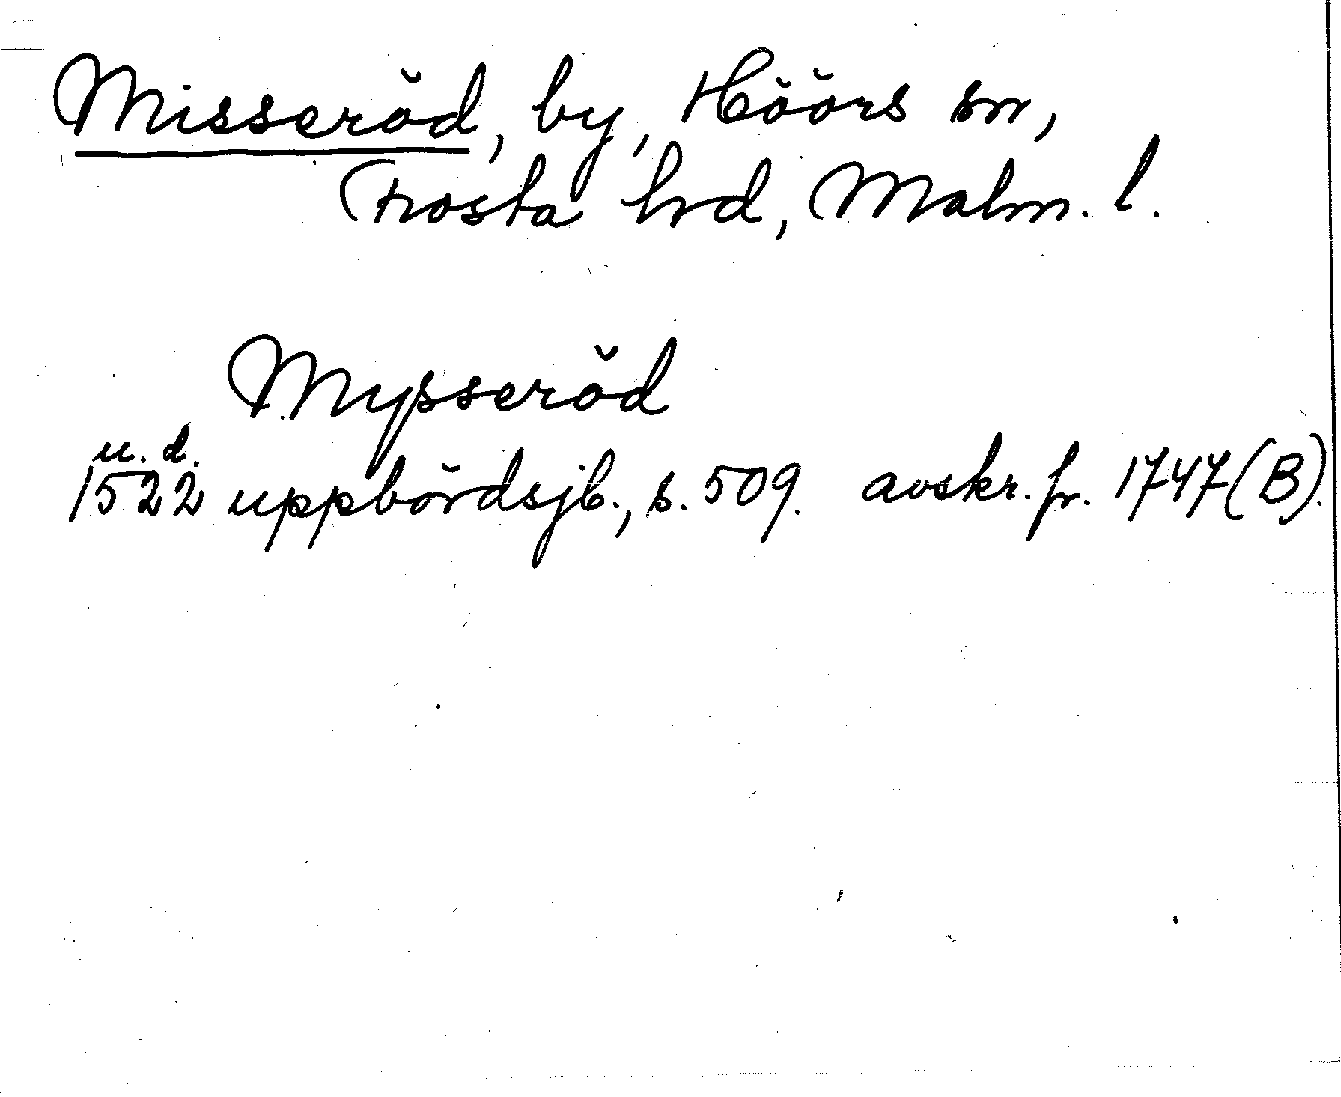 Misseröd, by, Höörs sn,
Frosta hrd, Malm. l.
Mysseröd
u. d.
1522 uppbördsjb., s. 509. avskr. fr. 1747 (B).